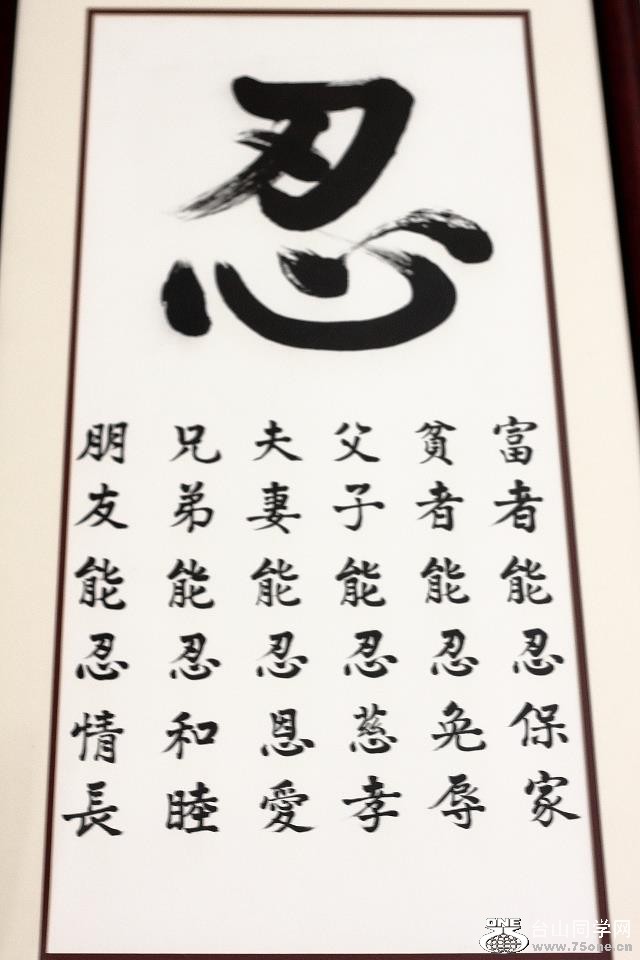 忍
富者能忍保家
貧者能忍免辱
父子能忍慈孝
夫妻能忍恩愛
兄弟能忍和睦
朋友能忍情長
ONE
台山同学网
www.75one.cn